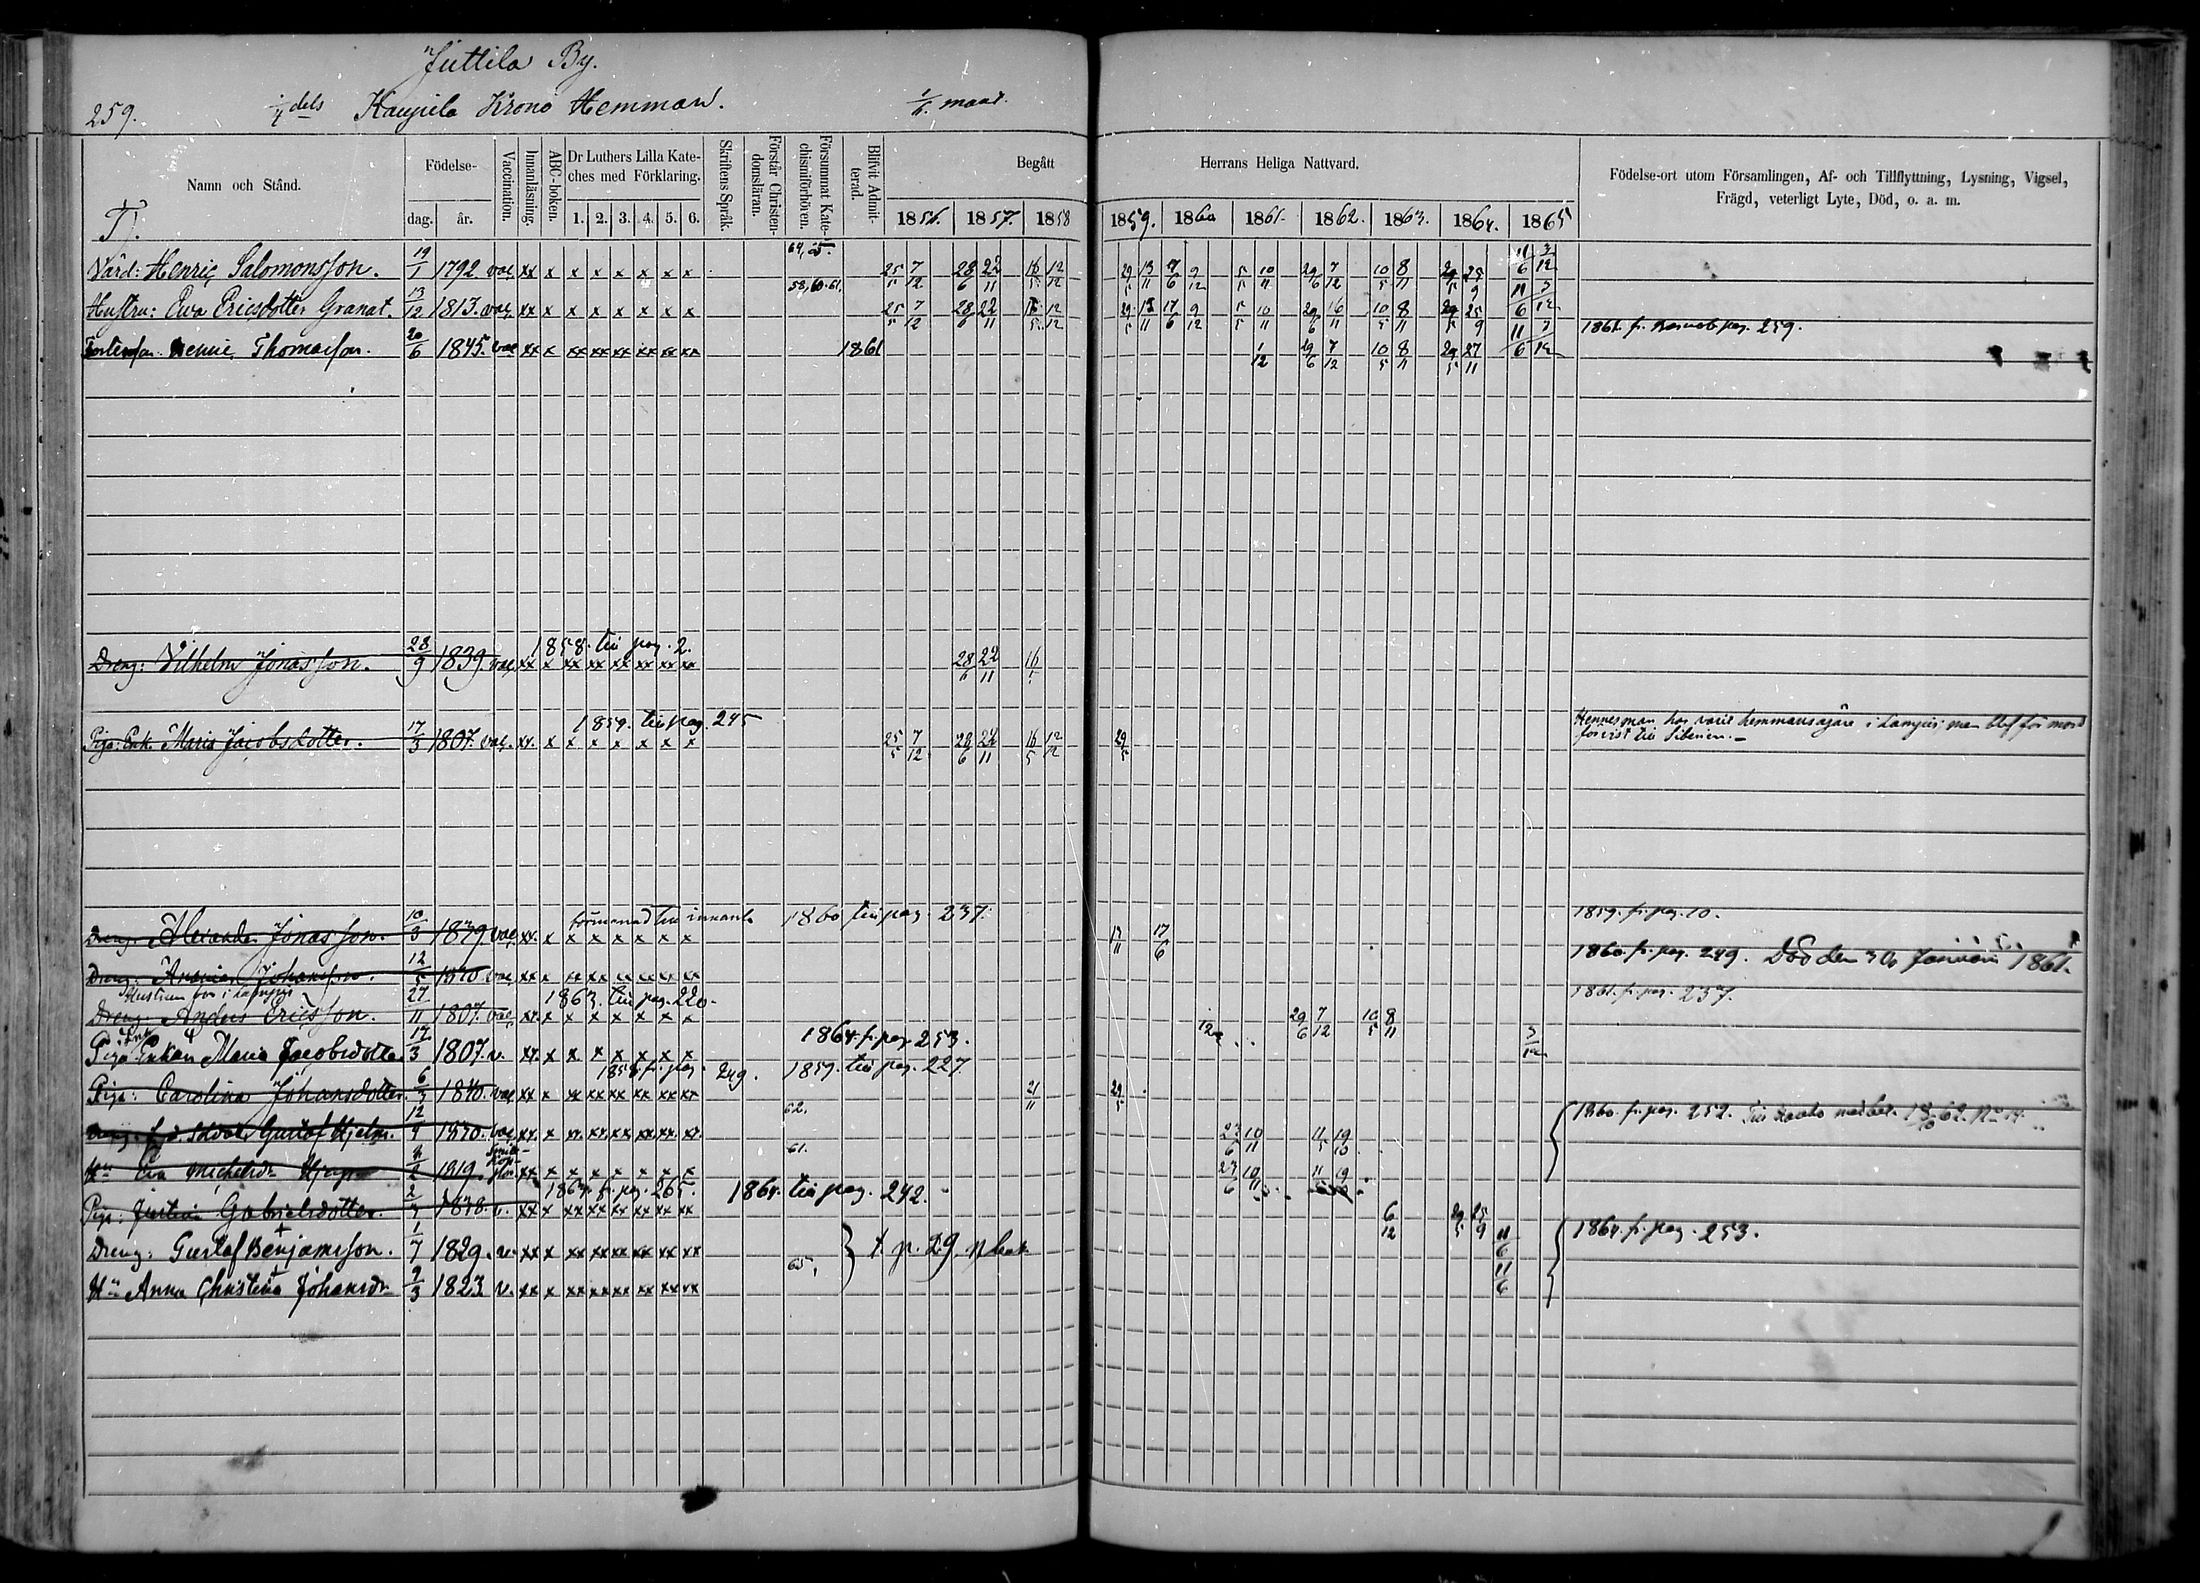 Juttila By.
259. 1/4 dels Kaupila Krono Hemman. 1/6 mant.
Namn och Stånd. Födelse- dag. år. Vaccination. Innanläsning. ABC-boken. Dr Luthers Lilla Kateches med Förklaring. 1. 2. 3. 4. 5. 6. Skriftens Språk. Förstår Christendomsläran. Försummat Katechismiförhören. Blifvit Admitterad. Begått Herrans Heliga Nattvard. 1856. 1857. 1858 1859. 1860 1861. 1862. 1863. 1864. 1865 Födelse-ort utom Församlingen, Af- och Tillflyttning, Lysning, Vigsel, Frägd, veterligt Lyte, Död, o. a. m.
T).
64, 65.
Värd: Henric Salomonsson. 19/1 1792 vac. xx x x x x x x x 25/5 7/12 28/6 22/11 16/5 12/12 29/5 13/11 17/6 9/12 5/5 10/11 29/6 7/12 10/5 8/11 29/5 25/9 11/6 3/12
58, 60. 61.
Hustru: Eva Ericsdotter Granat. 13/12 1813. vac. xx x x x x x x x 25/5 7/12 28/6 22/11 16/5 12/12 29/5 13/11 17/6 9/12 5/5 10/11 29/6 16/11 10/5 8/11 29/5 25/9 11/6 3/12
Thomasson. 20/6 1845. vac xx x xx xx xx xx xx xx 1861 1/12 29/6 7/12 10/5 8/11 29/5 27/11 11/6 3/12 1861. fr. pag. 259.
1858. till pag. 2.
Dreng: Vilhelm Jonasson. 28/9 1839 vac. xx x xx xx xx xx xx xx 28/6 22/11 16/5
1859. till pag. 245
Piga: Enk. Maria Jacobsdotter. 17/3 1807. vac. xx. x x x x x x x 25/5 7/12 28/6 22/11 16/5 12/12 29/5 Hennes man har varit hemmansägare i Lampis, men blef för mord
förvist till Siberien.
1860 till pag. 237. 1859. fr. pag. 10.
Dreng: Alexander Jonasson. 10/3 1839 vac. xx. x x x x x x x 13/11 17/6
Dreng: Johansson. 12/5 1840 vac xx x xx xx xx xx xx xx 1860. fr. pag. 249. Död den 30 Januari 1861.
Hustrun bor i Lampis 1863. till pag. 220. 1861. fr. pag. 237.
Dreng: Anders Ericsson. 27/11 1807. vac xx. x x x x x x x 29/6 7/12 10/5 8/11
1864. fr. pag. 253.
Piga Enkan Maria Jacobsdotter 17/3 1807. v. xx. x x. x x x x x 3/12
1858. fr. pag. 249. 1859. till pag. 227.
Piga: Carolina Johansdotter. 6/3 1840. vac. xx x xx xx xx xx xx xx 21/11 29/5
62. 1860. fr. pag. 252.
Gustaf Hjelm. 12/9 vac xx. x xx. xx. xx xx. xx. xx. 23/6 10/11 11/5 19/10
61.
Hu Eva Michelsdr 1819. xx x x x x x x x 23/6 10/11 11 19
1864. fr. pag. 265. 1864. till pag. 242.
Piga: Gabrielsdotter. 1838. v. xx x xx xx xx xx xx xx 6/12 29/5 25/9
Dreng: Gustaf Benjamsson. 1/7 1829. v. xx x xx xx xx xx xx xx † p. 29 11/6 1864. fr. pag. 253.
65.
Hu Anna Christina Johansdr 9/3 1823. v. xx. x xx xx xx xx xx xx 11/6